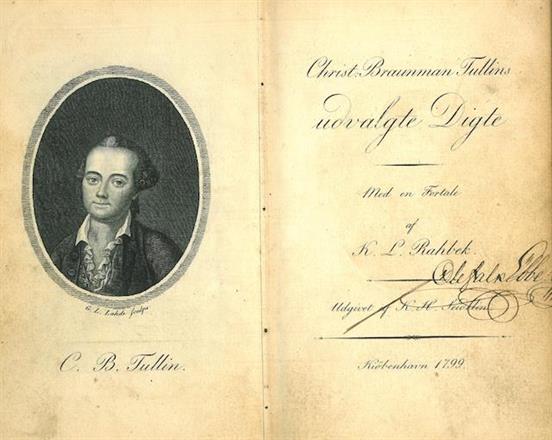 G. L. Lahde sculps.
C. B. Tullin.
Christ: Braunman Tullins
udvalgte Digte
Med en Fortale
af
K. L. Rahbek.
Udgivet af K. H. Seidelin
Kiöbenhavn 1799.